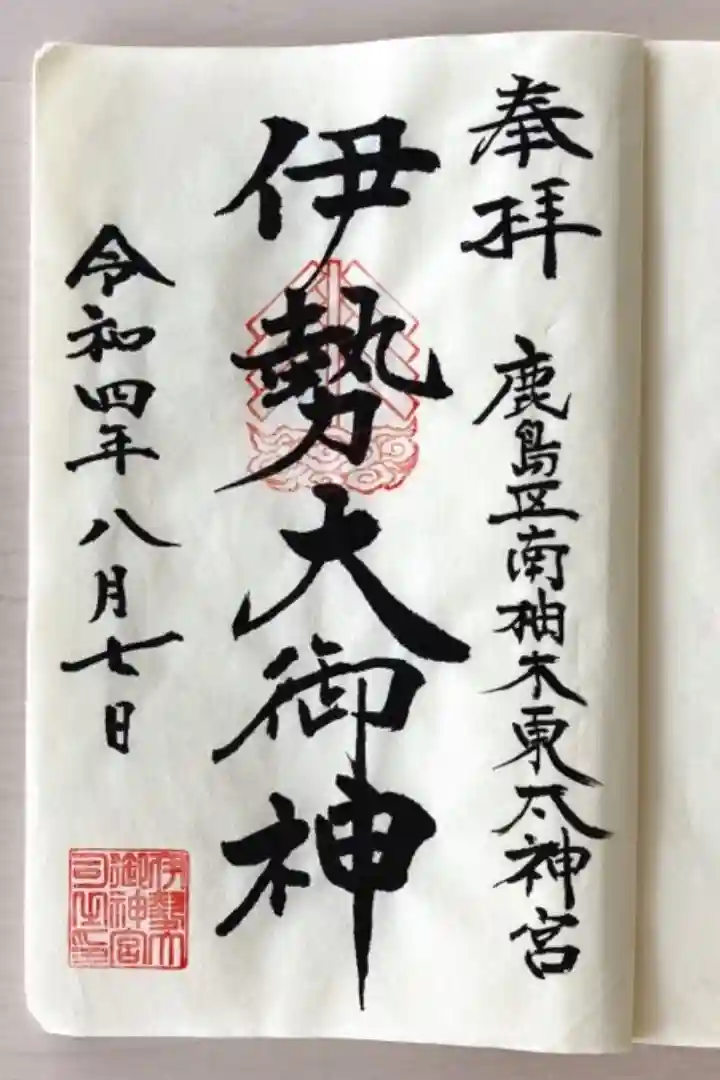 奉拝
鹿島区南柚木東太神宮
伊勢大御神
令和四年八月七日
伊勢大
御神宮
司之印